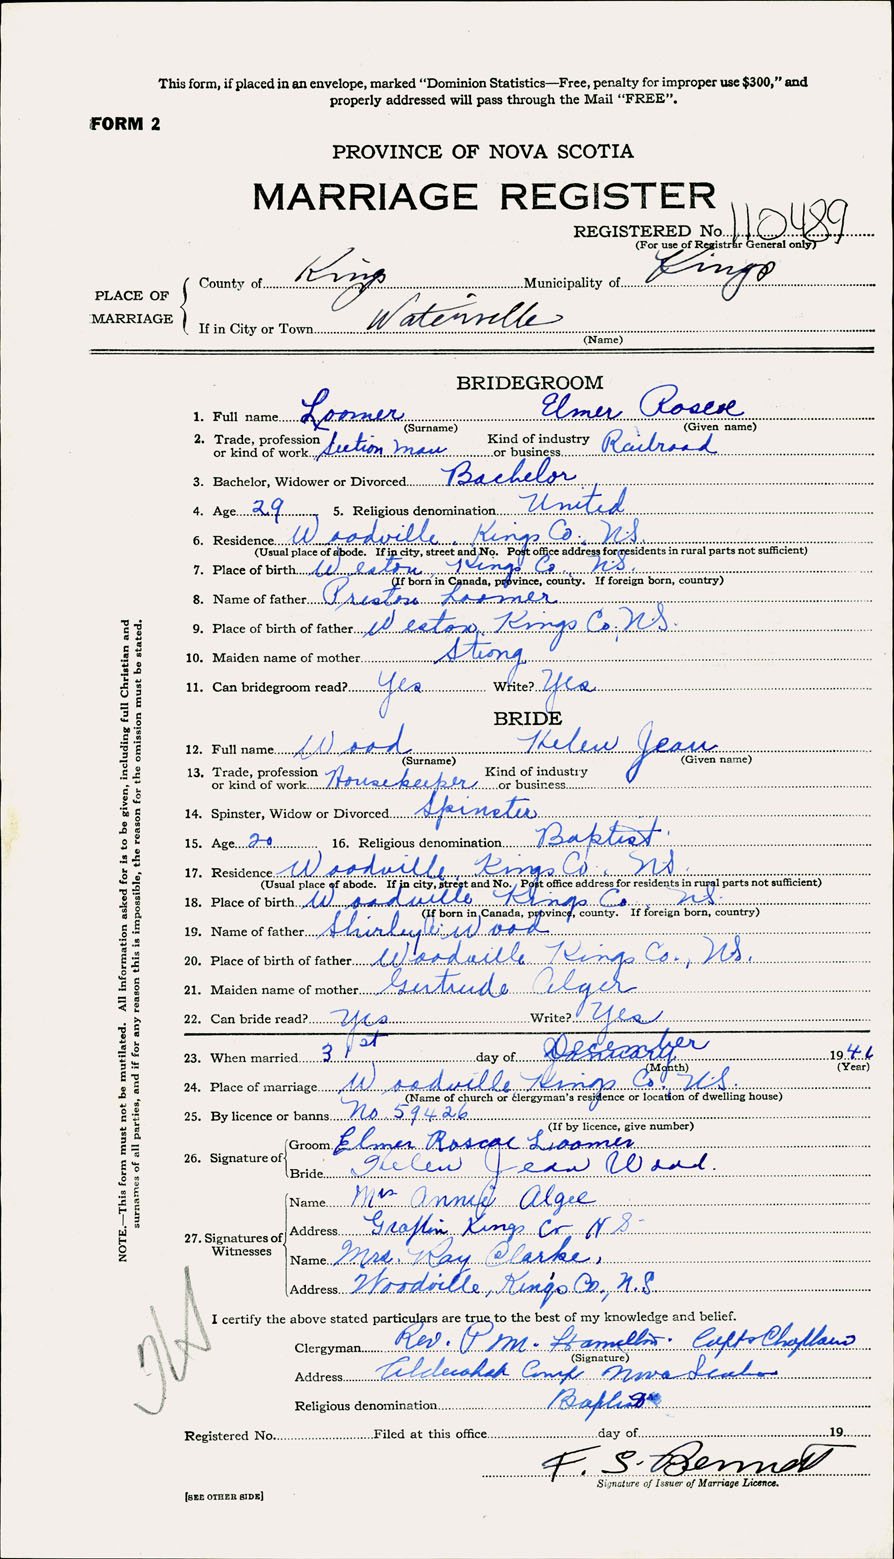 This form, if placed in an envelope, marked "Dominion Statistics—Free, penalty for improper use $300," and
properly addressed will pass through the Mail "FREE".
FORM 2
PROVINCE OF NOVA SCOTIA
MARRIAGE REGISTER
REGISTERED No. 110489
(For use of Registrar General only)
PLACE OF MARRIAGE
County of Kings Municipality of Kings
If in City or Town Waterville
(Name)
BRIDEGROOM
1. Full name Loomer Elmer Roscoe
(Surname) (Given name)
2. Trade, profession or kind of work Section man Kind of industry or business Railroad
3. Bachelor, Widower or Divorced Bachelor
4. Age 29 5. Religious denomination United
6. Residence Woodville, Kings Co., N.S.
(Usual place of abode. If in city, street and No. Post office address for residents in rural parts not sufficient)
7. Place of birth Weston, Kings Co., N.S.
(If born in Canada, province, county. If foreign born, country)
8. Name of father Preston Loomer
9. Place of birth of father Weston, Kings Co. N.S.
10. Maiden name of mother Strong
11. Can bridegroom read? Yes Write? Yes
BRIDE
12. Full name Wood Helen Jean
(Surname) (Given name)
13. Trade, profession or kind of work Housekeeper Kind of industry or business
14. Spinster, Widow or Divorced Spinster
15. Age 20 16. Religious denomination Baptist
17. Residence Woodville, Kings Co., N.S.
(Usual place of abode. If in city, street and No. Post office address for residents in rural parts not sufficient)
18. Place of birth Woodville Kings Co., N.S.
(If born in Canada, province, county. If foreign born, country)
19. Name of father Shirley Wood
20. Place of birth of father Woodville Kings Co., N.S.
21. Maiden name of mother Gertrude Alger
22. Can bride read? Yes Write? Yes
23. When married 31st day of December 1946
(Month) (Year)
24. Place of marriage Woodville Kings Co., N.S.
(Name of church or clergyman's residence or location of dwelling house)
25. By licence or banns No 59426
(If by licence, give number)
26. Signature of
Groom Elmer Roscoe Loomer
Bride Helen Jean Wood.
27. Signatures of Witnesses
Name Mrs Annie Algee
Address Grafton Kings Co N S
Name Mrs. Ray Clarke,
Address Woodville, Kings Co., N.S
I certify the above stated particulars are true to the best of my knowledge and belief.
Clergyman Rev. P M. Hamilton. Capt Chaplain
(Signature)
Address Aldershot Camp Nova Scotia
Religious denomination Baptist
Registered No. Filed at this office day of 19
F. S. Bennett
Signature of Issuer of Marriage Licence.
[SEE OTHER SIDE]
NOTE.—This form must not be mutilated. All Information asked for is to be given, including full Christian and
surnames of all parties, and if for any reason this is impossible, the reason for the omission must be stated.